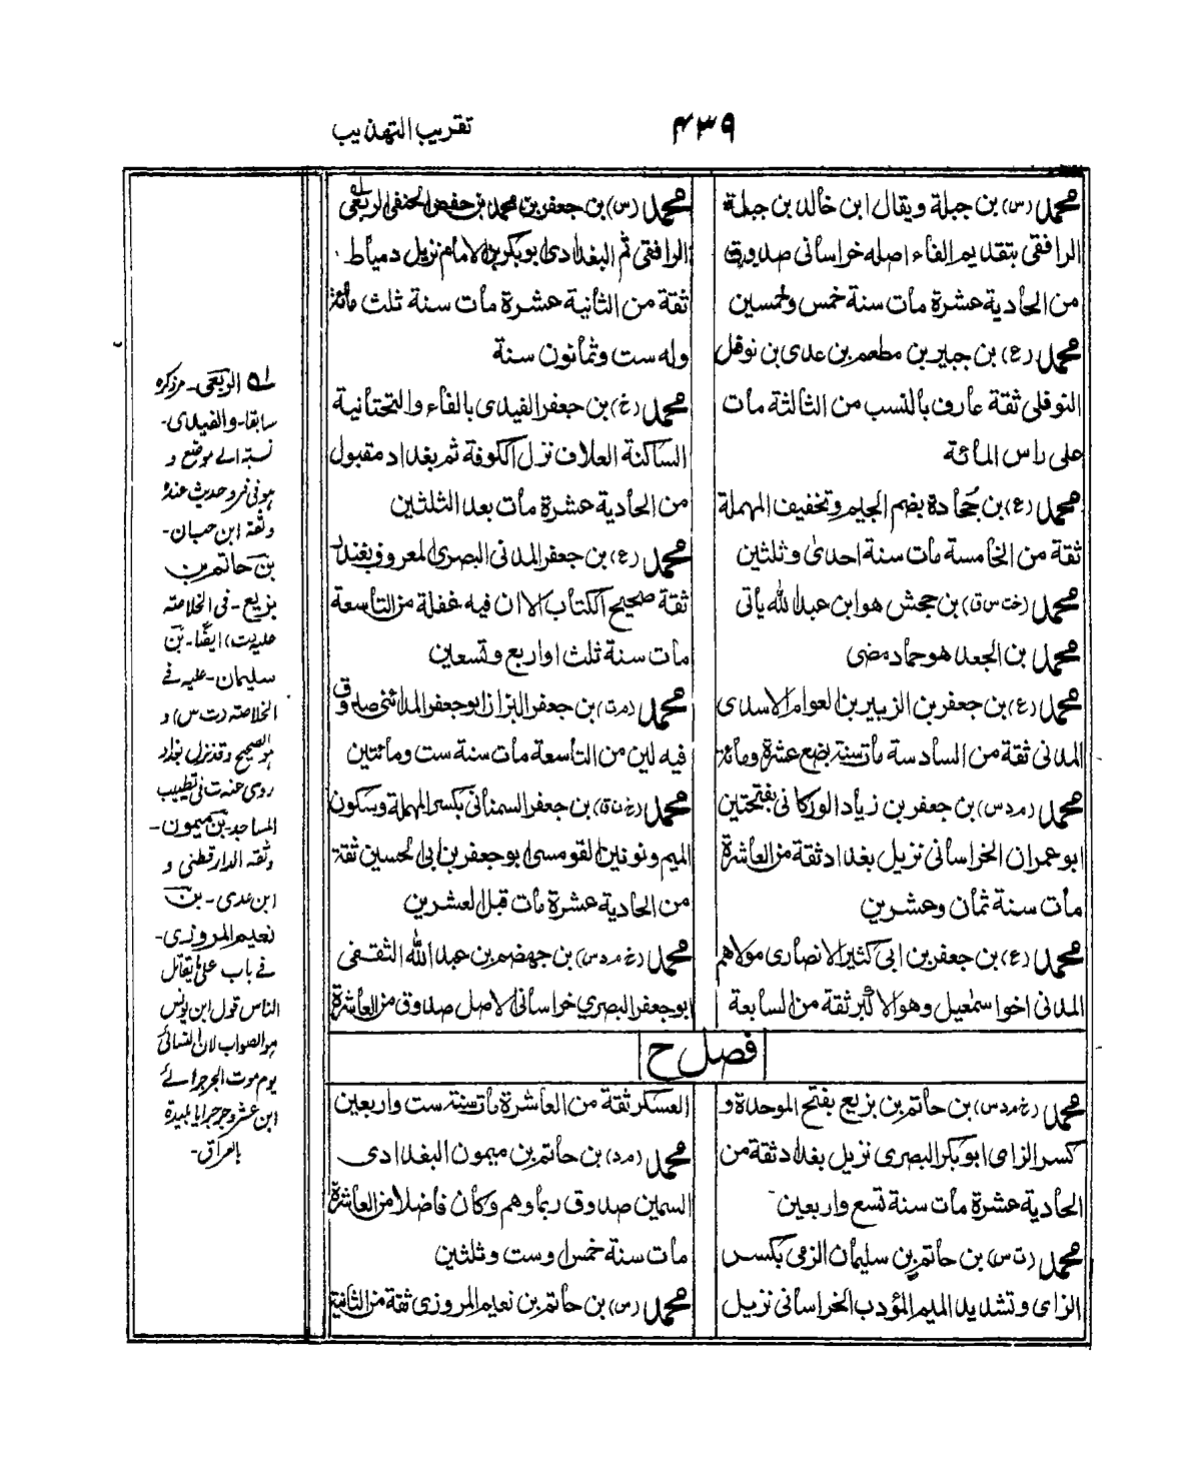 ٤٣٩
تقريب التهذيب
محمد (س) بن جبلة ويقال ابن خالد بن جبلة
الرافقى بتقديم الفاء اصله خراسانى صدوق
من الحادية عشرة مات سنة خمس وخمسين
محمد (ع) بن جبير بن مطعم بن عدى بن نوفل
النوفلى ثقة عارف بالنسب من الثالثة مات
على راس المائة
محمد (ع) بن جحادة بضم الجيم وتخفيف المهملة
ثقة من الخامسة مات سنة احدى وثلثين
محمد (خت س ق) بن جحش هو ابن عبد الله يأتى
محمد بن الجعد هو حماد مضى
محمد (ع) بن جعفر بن الزبير بن العوام الاسدى
المدنى ثقة من السادسة مات سنة بضع عشرة ومائة
محمد (م د س) بن جعفر بن زياد الوركانى بفتحتين
ابو عمران الخراسانى نزيل بغداد ثقة من العاشرة
مات سنة ثمان وعشرين
محمد (ع) بن جعفر بن ابى كثير الانصارى مولاهم
المدنى اخو اسمعيل وهو الاكبر ثقة من السابعة
محمد (س) بن جعفر بن محمد بن حفص الحنفى الربعى
الرافقى ثم البغدادى ابو بكر بن الامام نزيل دمياط
ثقة من الثانية عشرة مات سنة ثلث مائة
وله ست وثمانون سنة
محمد (خ) بن جعفر الفيدى بالفاء والتحتانية
الساكنة العلاف نزل الكوفة ثم بغداد مقبول
من الحادية عشرة مات بعد الثلثين
محمد (ع) بن جعفر المدنى البصرى المعروف بغندر
ثقة صحيح الكتاب الا ان فيه غفلة من التاسعة
مات سنة ثلث او اربع وتسعين
محمد (م ت) بن جعفر البزاز ابو جعفر المدائنى صدوق
فيه لين من التاسعة مات سنة ست ومائتين
محمد (خ ت ق) بن جعفر السمنانى بكسر المهملة وسكون
الميم ونونين القومسى ابو جعفر بن ابى الحسين ثقة
من الحادية عشرة مات قبل العشرين
محمد (خ م د س) بن جهضم بن عبد الله الثقفى
ابو جعفر البصري خراسانى الاصل صدوق من العاشرة
فصل ح
محمد (خ م د س) بن حاتم بن بزيع بفتح الموحدة و
كسر الزاى ابو بكر البصرى نزيل بغداد ثقة من
الحادية عشرة مات سنة تسع واربعين
محمد (ت س) بن حاتم بن سليمان الزمى بكسر
الزاى وتشديد الميم المؤدب الخراسانى نزيل
العسكر ثقة من العاشرة مات سنة ست واربعين
محمد (م د) بن حاتم بن ميمون البغدادى
السمين صدوق ربما وهم وكان فاضلا من العاشرة
مات سنة خمس او ست وثلثين
محمد (س) بن حاتم بن نعيم المروزى ثقة من الثانية
الربعى - مر ذكره
سابقا - والفيدى -
نسبة الى موضع و
هو فى فرد حديث عنده
وثقه ابن حبان -
بن حاتم بن
بزيع - فى الخلاصة
عليه ت) ايضا - بن
سليمان - عليه فى
الخلاصة (ت س) و
هو الصحيح وقد نزل بغداد
روى عنه ت فى تطييب
المساجد - بن ميمون -
وثقه الدارقطنى و
ابن عدى - بن
نعيم المروزى -
فى باب على ما يقاتل
الناس قول ابن يونس
هو الصواب لان النسائى
يوم موت الجرجرائے
ابن عشر وجرجرايا بليدة
بالعراق -